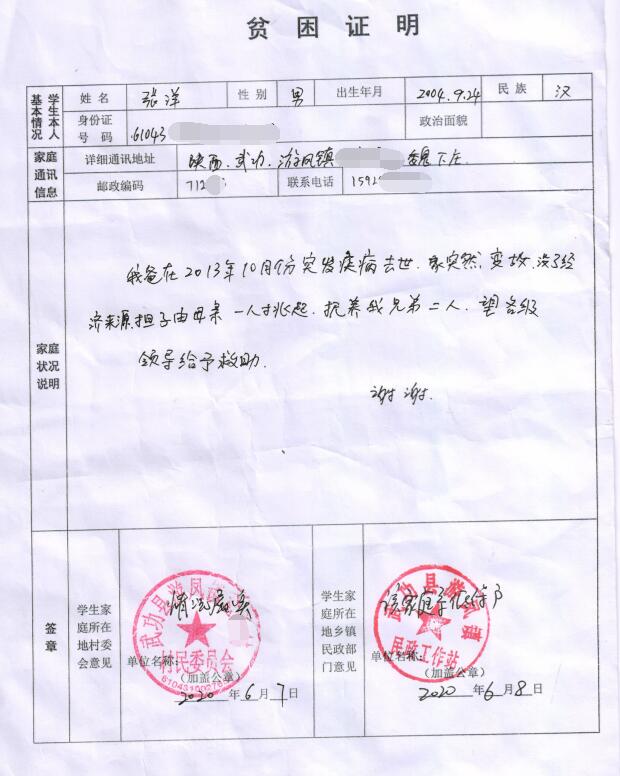 贫困证明
学生本人基本情况 姓名 张洋 性别 男 出生年月 2004.9.24 民族 汉
身份证号码 61043 政治面貌
家庭通讯信息 详细通讯地址 陕西.武功.游凤镇 魏下庄
邮政编码 712 联系电话 1592
家庭状况说明
我爸在2013年10月9份突发疾病去世.家突然变故.没了经
济来源.担子由母亲一人才兆起.抚养我兄弟二人.望各级
领导给予救助.
谢谢.
签章
学生家庭所在地村委会意见
情况属实
武功县游凤镇
村民委员会
单位名称:
(加盖公章)
2020年6月7日
学生家庭所在地乡镇民政部门意见
该家庭系低保户
武功县游凤镇
民政工作站
单位名称:
(加盖公章)
2020年6月8日